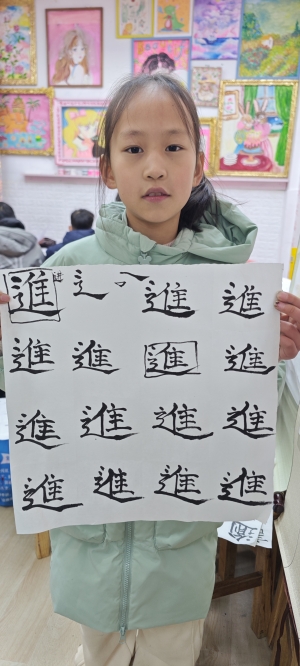 進 进 辶 進 進
進 進 進 進
進 進 進 進
進 進 進 進